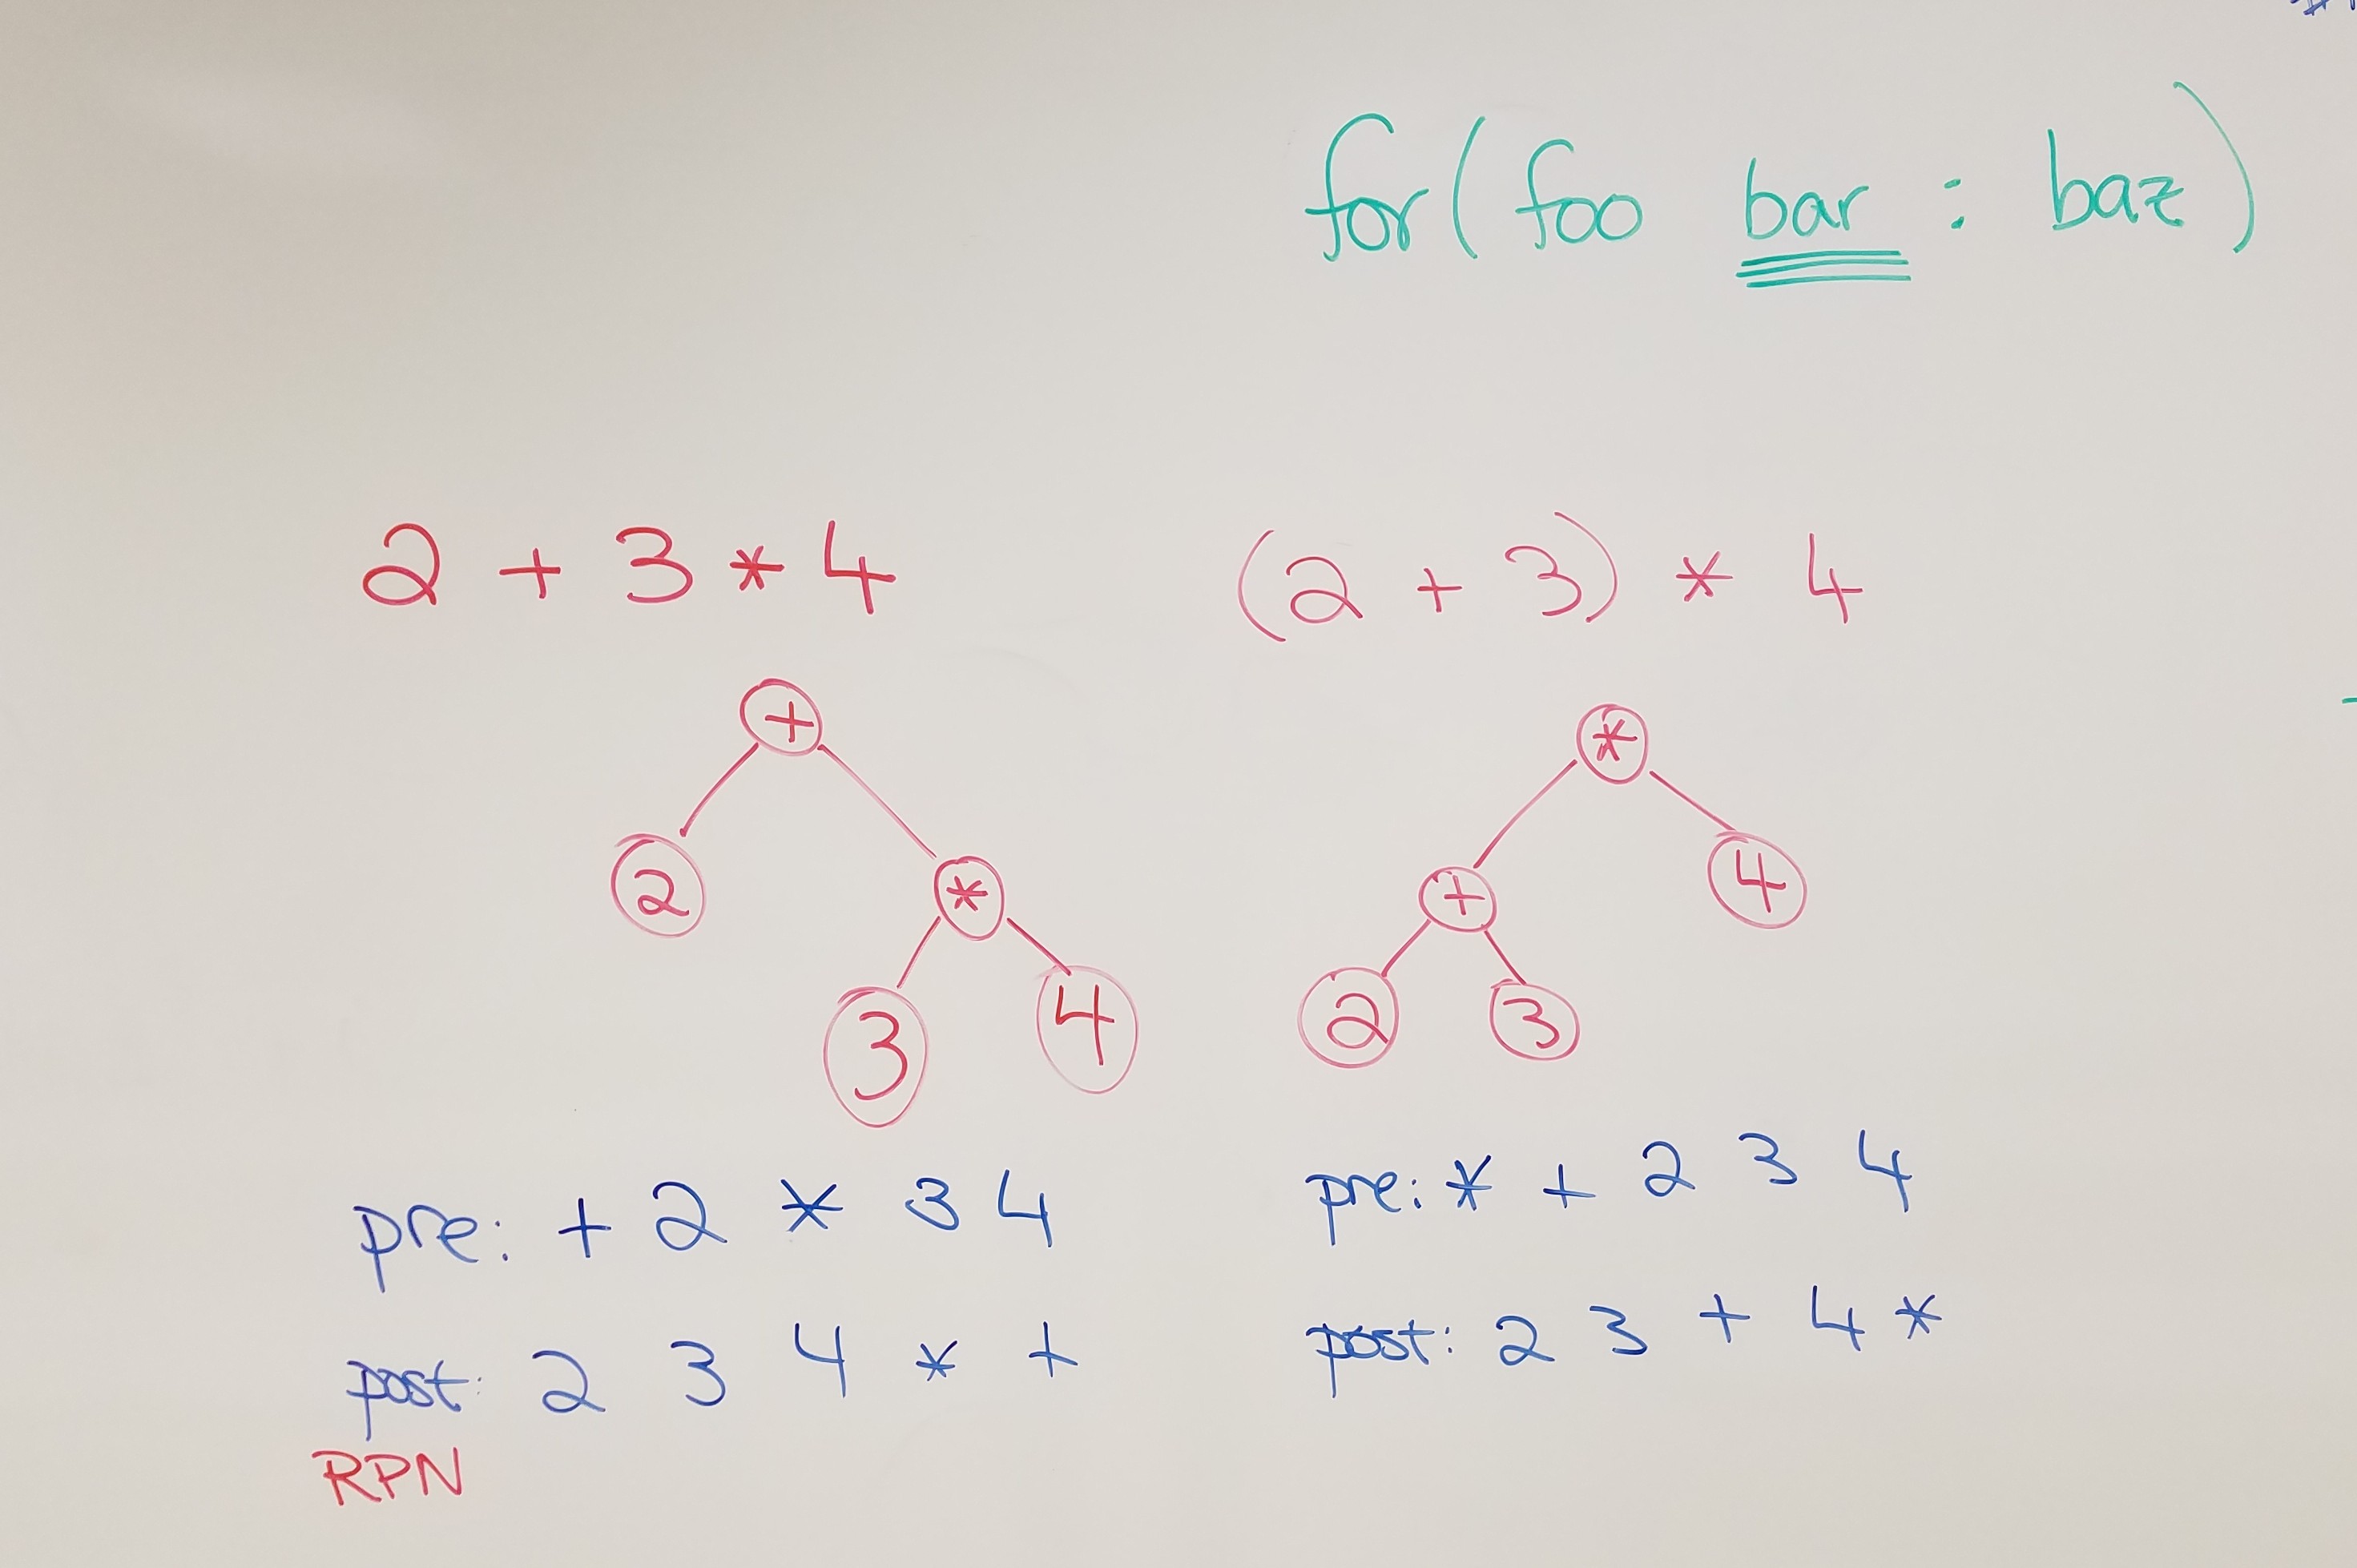 for(foo bar : baz)
2 + 3 * 4
(2 + 3) * 4
+
2
*
3
4
*
+
4
2
3
pre: + 2 * 3 4
post: 2 3 4 * +
RPN
pre: * + 2 3 4
post: 2 3 + 4 *